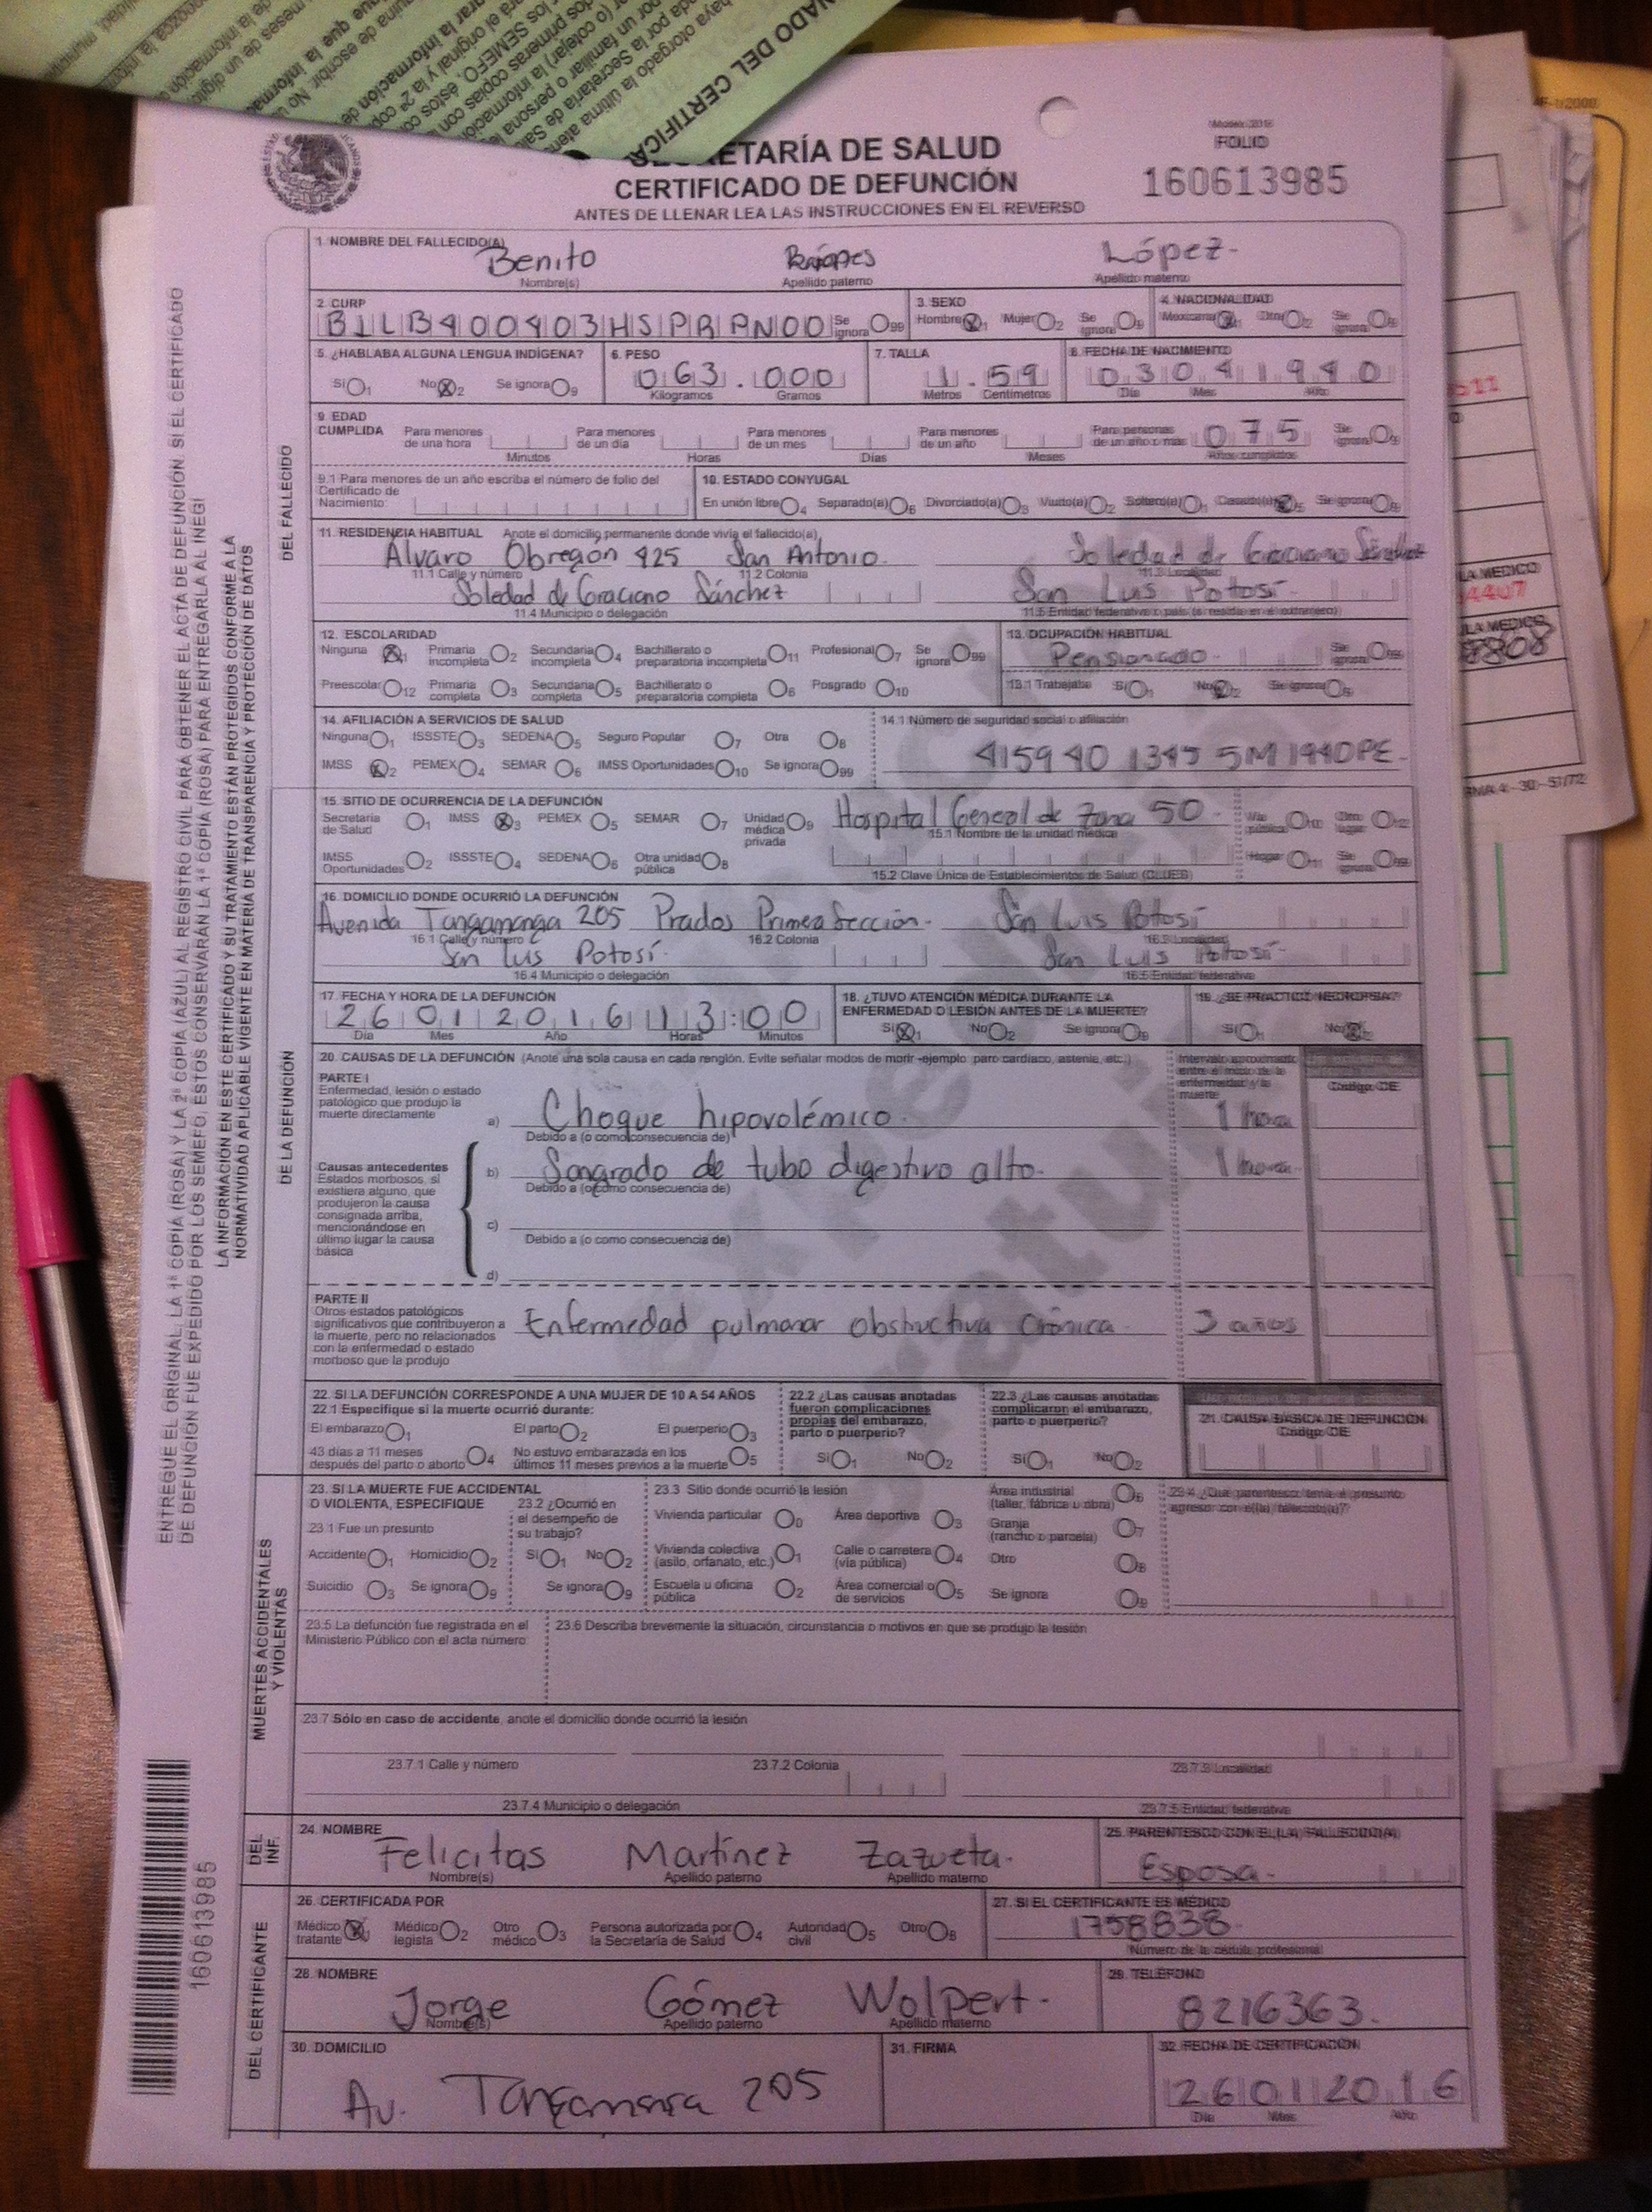 NADO DEL CERTIFICA
SECRETARÍA DE SALUD
CERTIFICADO DE DEFUNCIÓN
ANTES DE LLENAR LEA LAS INSTRUCCIONES EN EL REVERSO
FOLIO
160613985
ENTREGUE EL ORIGINAL, LA 1ª COPIA (ROSA) Y LA 2ª COPIA (AZUL) AL REGISTRO CIVIL PARA OBTENER EL ACTA DE DEFUNCIÓN. SI EL CERTIFICADO
DE DEFUNCIÓN FUE EXPEDIDO POR LOS SEMEFO, ÉSTOS CONSERVARÁN LA 1ª COPIA (ROSA) PARA ENTREGARLA AL INEGI
LA INFORMACIÓN EN ESTE CERTIFICADO Y SU TRATAMIENTO ESTÁN PROTEGIDOS CONFORME A LA
NORMATIVIDAD APLICABLE VIGENTE EN MATERIA DE TRANSPARENCIA Y PROTECCIÓN DE DATOS
DEL FALLECIDO
1. NOMBRE DEL FALLECIDO(A)
Benito López
Nombre(s) Apellido paterno Apellido materno
2. CURP 3. SEXO 4. NACIONALIDAD
Se ignora 99 Hombre 1 Mujer 2 Se ignora 9 Mexicana 1 Otra 2 Se ignora 9
5. ¿HABLABA ALGUNA LENGUA INDÍGENA? 6. PESO 7. TALLA 8. FECHA DE NACIMIENTO
Sí 1 No 2 Se ignora 9 063.000 1.59 03041940
Kilogramos Gramos Metros Centímetros Día Mes Año
9. EDAD CUMPLIDA Para menores de una hora Para menores de un día Para menores de un mes Para menores de un año Para personas de un año o más 075 Se ignora 9
Minutos Horas Días Meses Años cumplidos
9.1 Para menores de un año escriba el número de folio del Certificado de Nacimiento:
10. ESTADO CONYUGAL
En unión libre 4 Separado(a) 6 Divorciado(a) 3 Viudo(a) 2 Soltero(a) 1 Casado(a) 5 Se ignora 9
11. RESIDENCIA HABITUAL Anote el domicilio permanente donde vivía el fallecido(a)
Alvaro Obregón 425 San Antonio. Soledad de Graciano Sánchez
11.1 Calle y número 11.2 Colonia 11.3 Localidad
Soledad de Graciano Sánchez San Luis Potosí.
11.4 Municipio o delegación 11.5 Entidad federativa o país (si residía en el extranjero)
12. ESCOLARIDAD 13. OCUPACIÓN HABITUAL
Ninguna 1 Primaria incompleta 2 Secundaria incompleta 4 Bachillerato o preparatoria incompleta 11 Profesional 7 Se ignora 99
Pensionado. Se ignora 99
Preescolar 12 Primaria completa 3 Secundaria completa 5 Bachillerato o preparatoria completa 6 Posgrado 10
13.1 Trabajaba Sí 1 No 2 Se ignora 9
14. AFILIACIÓN A SERVICIOS DE SALUD 14.1 Número de seguridad social o afiliación
Ninguna 1 ISSSTE 3 SEDENA 5 Seguro Popular 7 Otra 8
IMSS 2 PEMEX 4 SEMAR 6 IMSS Oportunidades 10 Se ignora 99
DE LA DEFUNCIÓN
15. SITIO DE OCURRENCIA DE LA DEFUNCIÓN
Secretaría de Salud 1 IMSS 3 PEMEX 5 SEMAR 7 Unidad médica privada 9 Hospital General de Zona 50. Vía pública 10 Otro lugar 12
15.1 Nombre de la unidad médica
IMSS Oportunidades 2 ISSSTE 4 SEDENA 6 Otra unidad pública 8 Hogar 11 Se ignora 99
15.2 Clave Única de Establecimientos de Salud (CLUES)
16. DOMICILIO DONDE OCURRIÓ LA DEFUNCIÓN
Avenida Tangamanga 205 Prados Primera Sección. San Luis Potosí
16.1 Calle y número 16.2 Colonia 16.3 Localidad
San Luis Potosí. San Luis Potosí.
16.4 Municipio o delegación 16.5 Entidad federativa
17. FECHA Y HORA DE LA DEFUNCIÓN 18. ¿TUVO ATENCIÓN MÉDICA DURANTE LA ENFERMEDAD O LESIÓN ANTES DE LA MUERTE? 19. ¿SE PRACTICÓ NECROPSIA?
26012016 13:00 Sí 1 No 2 Se ignora 9 Sí 1 No 2
Día Mes Año Horas Minutos
20. CAUSAS DE LA DEFUNCIÓN (Anote una sola causa en cada renglón. Evite señalar modos de morir -ejemplo: paro cardiaco, astenia, etc.)
Intervalo aproximado entre el inicio de la enfermedad y la muerte
Código CIE
PARTE I
Enfermedad, lesión o estado patológico que produjo la muerte directamente
a) Choque hipovolémico. 1 hora
Debido a (o como consecuencia de)
Causas antecedentes
Estados morbosos, si existiera alguno, que produjeron la causa consignada arriba, mencionándose en último lugar la causa básica
b) Sangrado de tubo digestivo alto. 1 hora.
Debido a (o como consecuencia de)
c)
Debido a (o como consecuencia de)
d)
PARTE II
Otros estados patológicos significativos que contribuyeron a la muerte, pero no relacionados con la enfermedad o estado morboso que la produjo
Enfermedad pulmonar obstructiva crónica. 3 años
22. SI LA DEFUNCIÓN CORRESPONDE A UNA MUJER DE 10 A 54 AÑOS
22.1 Especifique si la muerte ocurrió durante:
El embarazo 1 El parto 2 El puerperio 3
43 días a 11 meses después del parto o aborto 4 No estuvo embarazada en los últimos 11 meses previos a la muerte 5
22.2 ¿Las causas anotadas fueron complicaciones propias del embarazo, parto o puerperio?
Sí 1 No 2
22.3 ¿Las causas anotadas complicaron el embarazo, parto o puerperio?
Sí 1 No 2
21. CAUSA BÁSICA DE DEFUNCIÓN
Código CIE
MUERTES ACCIDENTALES Y VIOLENTAS
23. SI LA MUERTE FUE ACCIDENTAL O VIOLENTA, ESPECIFIQUE
23.1 Fue un presunto
Accidente 1 Homicidio 2
Suicidio 3 Se ignora 9
23.2 ¿Ocurrió en el desempeño de su trabajo?
Sí 1 No 2
Se ignora 9
23.3 Sitio donde ocurrió la lesión
Vivienda particular 0 Área deportiva 3 Área industrial (taller, fábrica u obra) 6
Vivienda colectiva (asilo, orfanato, etc.) 1 Calle o carretera (vía pública) 4 Granja (rancho o parcela) 7
Escuela u oficina pública 2 Área comercial o de servicios 5 Otro 8
Se ignora 9
23.4 ¿Qué parentesco tenía el presunto agresor con el(la) fallecido(a)?
23.5 La defunción fue registrada en el Ministerio Público con el acta número:
23.6 Describa brevemente la situación, circunstancia o motivos en que se produjo la lesión
23.7 Sólo en caso de accidente, anote el domicilio donde ocurrió la lesión
23.7.1 Calle y número 23.7.2 Colonia 23.7.3 Localidad
23.7.4 Municipio o delegación 23.7.5 Entidad federativa
DEL INF.
24. NOMBRE 25. PARENTESCO CON EL(LA) FALLECIDO(A)
Felicitas Martínez Zazueta. Esposa.
Nombre(s) Apellido paterno Apellido materno
DEL CERTIFICANTE
26. CERTIFICADA POR 27. SI EL CERTIFICANTE ES MÉDICO
Médico tratante 1 Médico legista 2 Otro médico 3 Persona autorizada por la Secretaría de Salud 4 Autoridad civil 5 Otro 8
1758838
Número de la cédula profesional
28. NOMBRE 29. TELÉFONO
Jorge Gómez Wolpert. 8216363.
Nombre(s) Apellido paterno Apellido materno
30. DOMICILIO 31. FIRMA 32. FECHA DE CERTIFICACIÓN
Av. 205 26012016
Día Mes Año
160613985